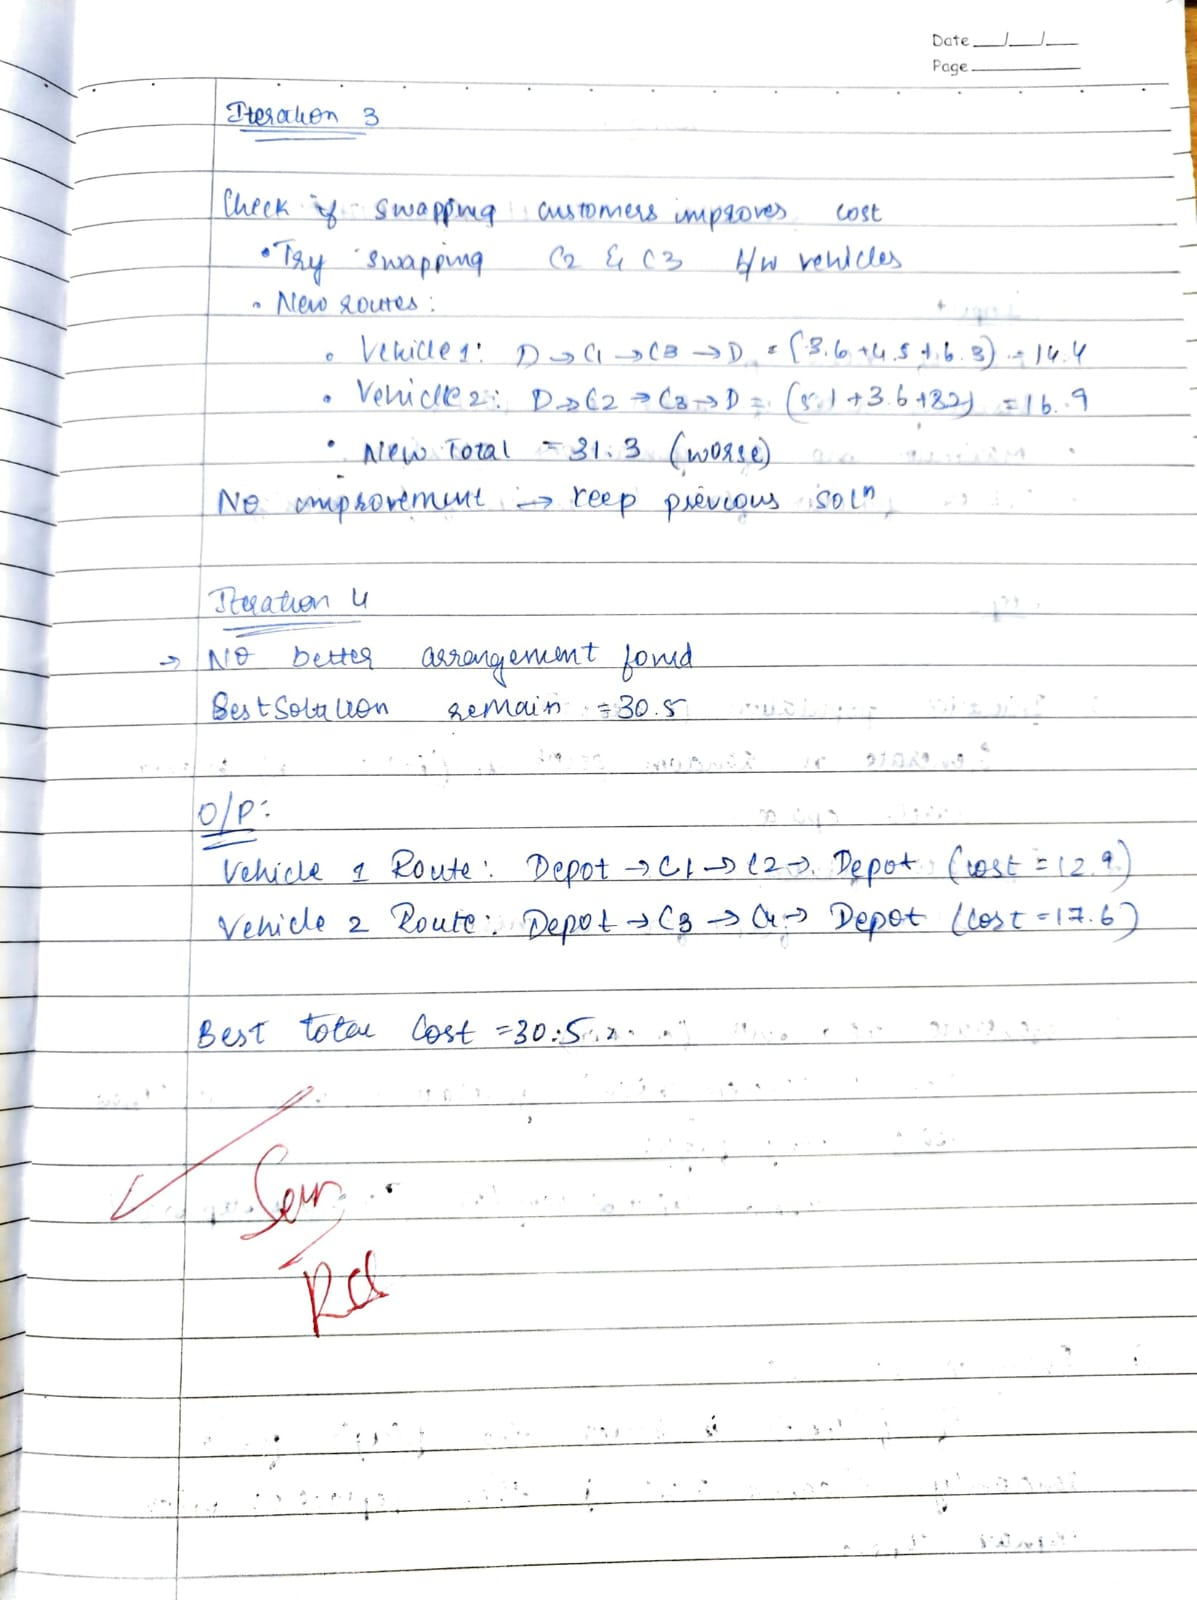 Date __/__/__
Page
Iteration 3
Check if swapping customers improves cost
• Try swapping C2 & C3 b/w vehicles
• New routes:
• Vehicle 1: D → C1 → C3 → D = (3.6 + 4.5 + 6.3) = 14.4
• Vehicle 2: D → C2 → C3 → D = (5.1 + 3.6 + 8.2) = 16.9
• New Total = 31.3 (worse)
No improvement → keep previous solⁿ
Iteration 4
→ No better arrangement found
Best Solution remain = 30.5
O/P:
Vehicle 1 Route: Depot → C1 → C2 → Depot (cost = 12.9)
Vehicle 2 Route: Depot → C3 → C4 → Depot (cost = 17.6)
Best total Cost = 30.5